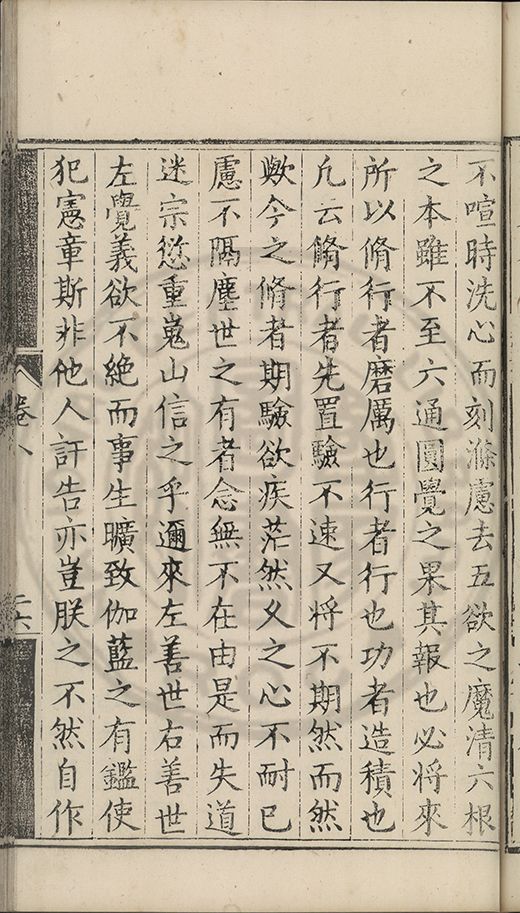 不喧時洗心而刻滌慮去五欲之魔清六根
之本雖不至六通圓覺之果其報也必將來
所以脩行者磨厲也行者行也功者造積也
凡云脩行者先置驗不速又將不期然而然
歟今之脩者期驗欲疾茫然久之心不耐已
慮不隔塵世之有者念無不在由是而失道
迷宗愆重嵬山信之乎邇來左善世右善世
左覺義欲不絶而事生曠致伽藍之有鑑使
犯憲章斯非他人訐告亦豈朕之不然自作
卷八
二六